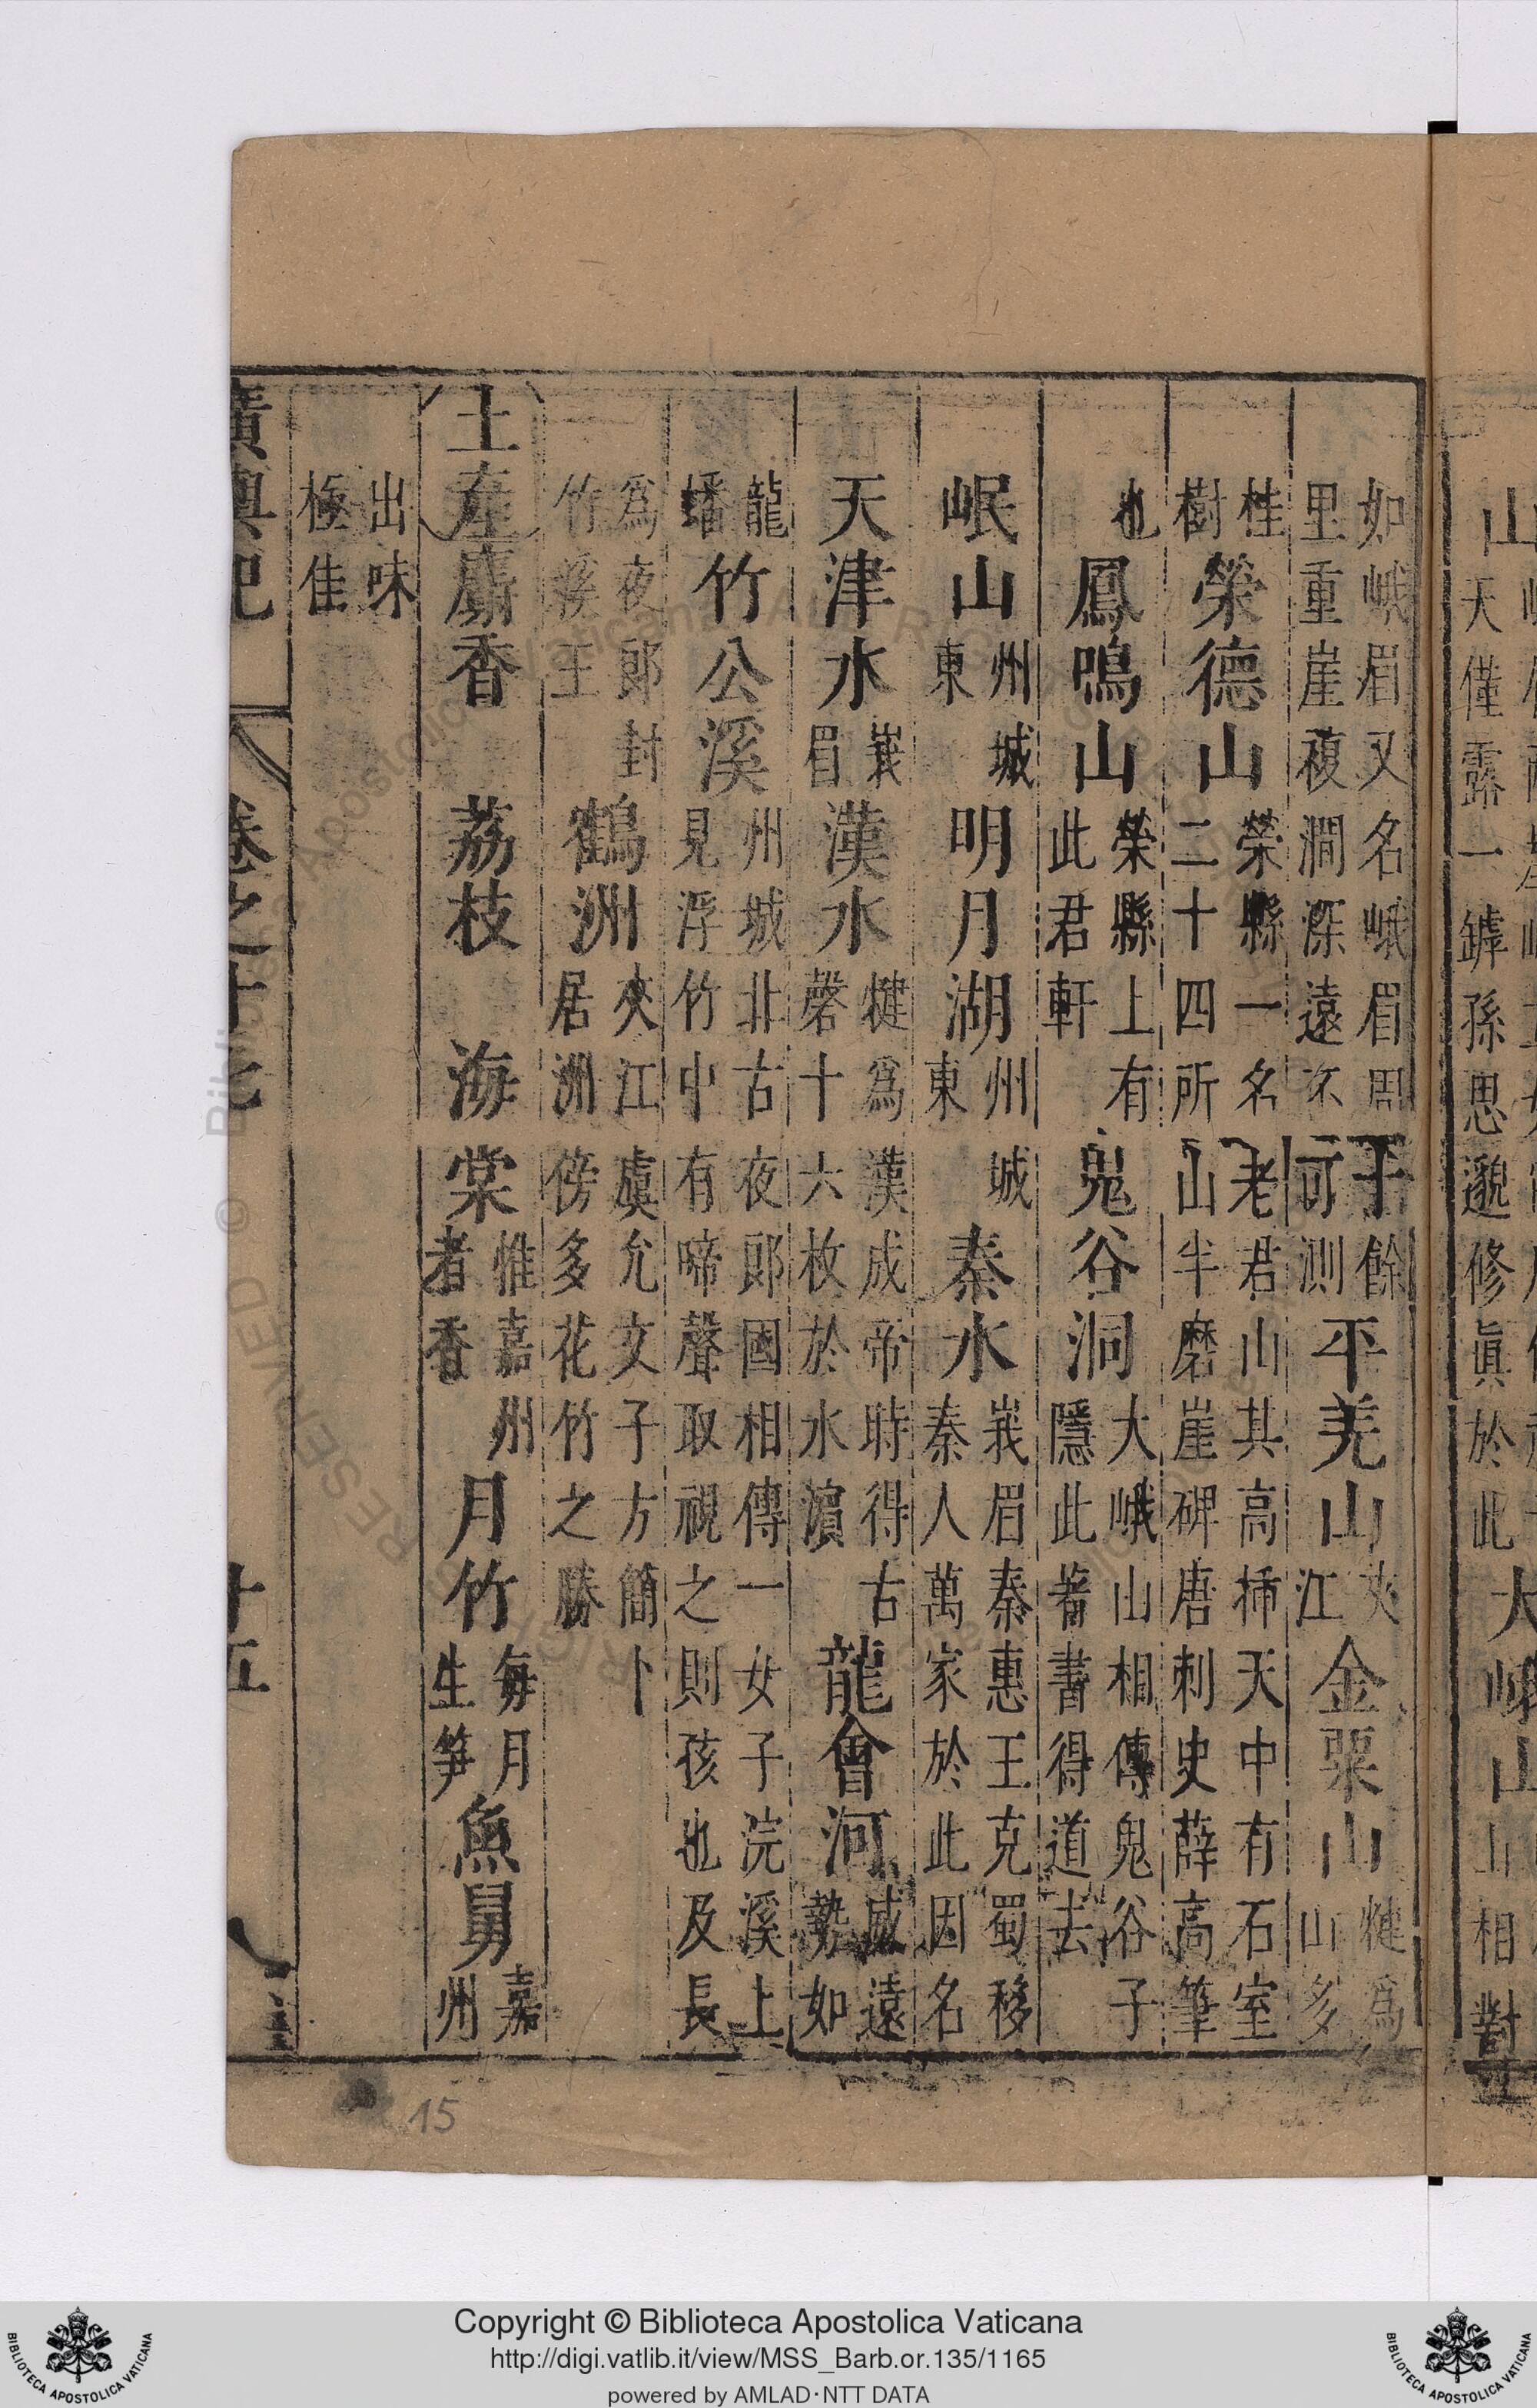 如峨眉又名峨眉周千餘
里重崖複澗深遠不可測平羌山夾江金粟山犍爲山多
桂樹榮德山榮縣一名老君山其高揷天中有石室
二十四所山半磨崖碑唐刺史薛高筆
也鳳鳴山榮縣上有此君軒鬼谷洞大峨山相傳鬼谷子隱此著書得道去
岷山州城東明月湖州城東秦水峩眉秦惠王克蜀移秦人萬家於此因名
天津水峩眉漢水犍爲漢成帝時得古磬十六枚於水濵龍會河威遠勢如
龍蟠竹公溪州城北古夜郎國相傳一女子浣溪上見浮竹中有啼聲取視之則孩也及長
爲夜郎封竹溪王鶴洲夾江虞允文子方簡卜居洲傍多花竹之勝
土產麝香荔枝海棠惟嘉州者香月竹每月生笋魚舅嘉州
出味極佳
廣輿記
卷之十七
十五
15
Copyright © Biblioteca Apostolica Vaticana
http://digi.vatlib.it/view/MSS_Barb.or.135/1165
powered by AMLAD·NTT DATA